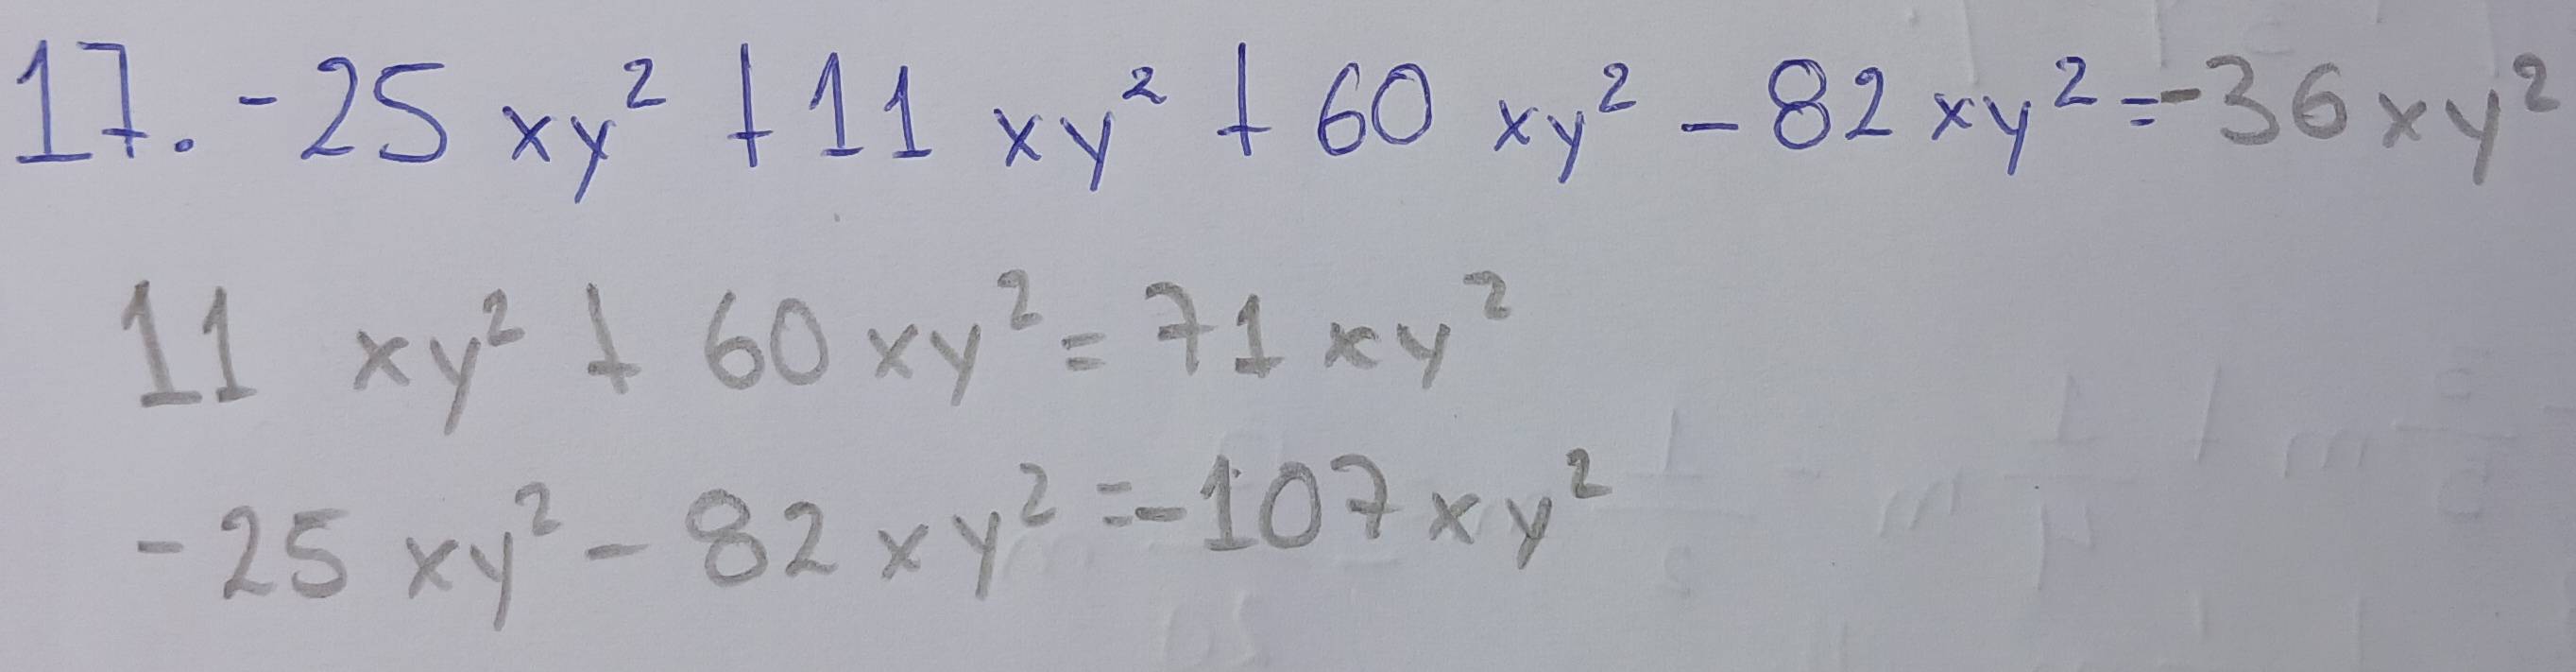 17. -25 xy² + 11 xy² + 60 xy² - 82 xy² = -36 xy²
11 xy² + 60 xy² = 71 xy²
-25 xy² - 82 xy² = -107 xy²